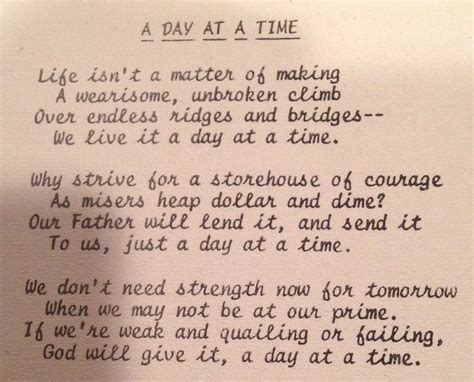 A DAY AT A TIME
Life isn't a matter of making
A wearisome, unbroken climb
Over endless ridges and bridges--
We live it a day at a time.
Why strive for a storehouse of courage
As misers heap dollar and dime?
Our Father will lend it, and send it
To us, just a day at a time.
We don't need strength now for tomorrow
When we may not be at our prime.
If we're weak and quailing or failing,
God will give it, a day at a time.